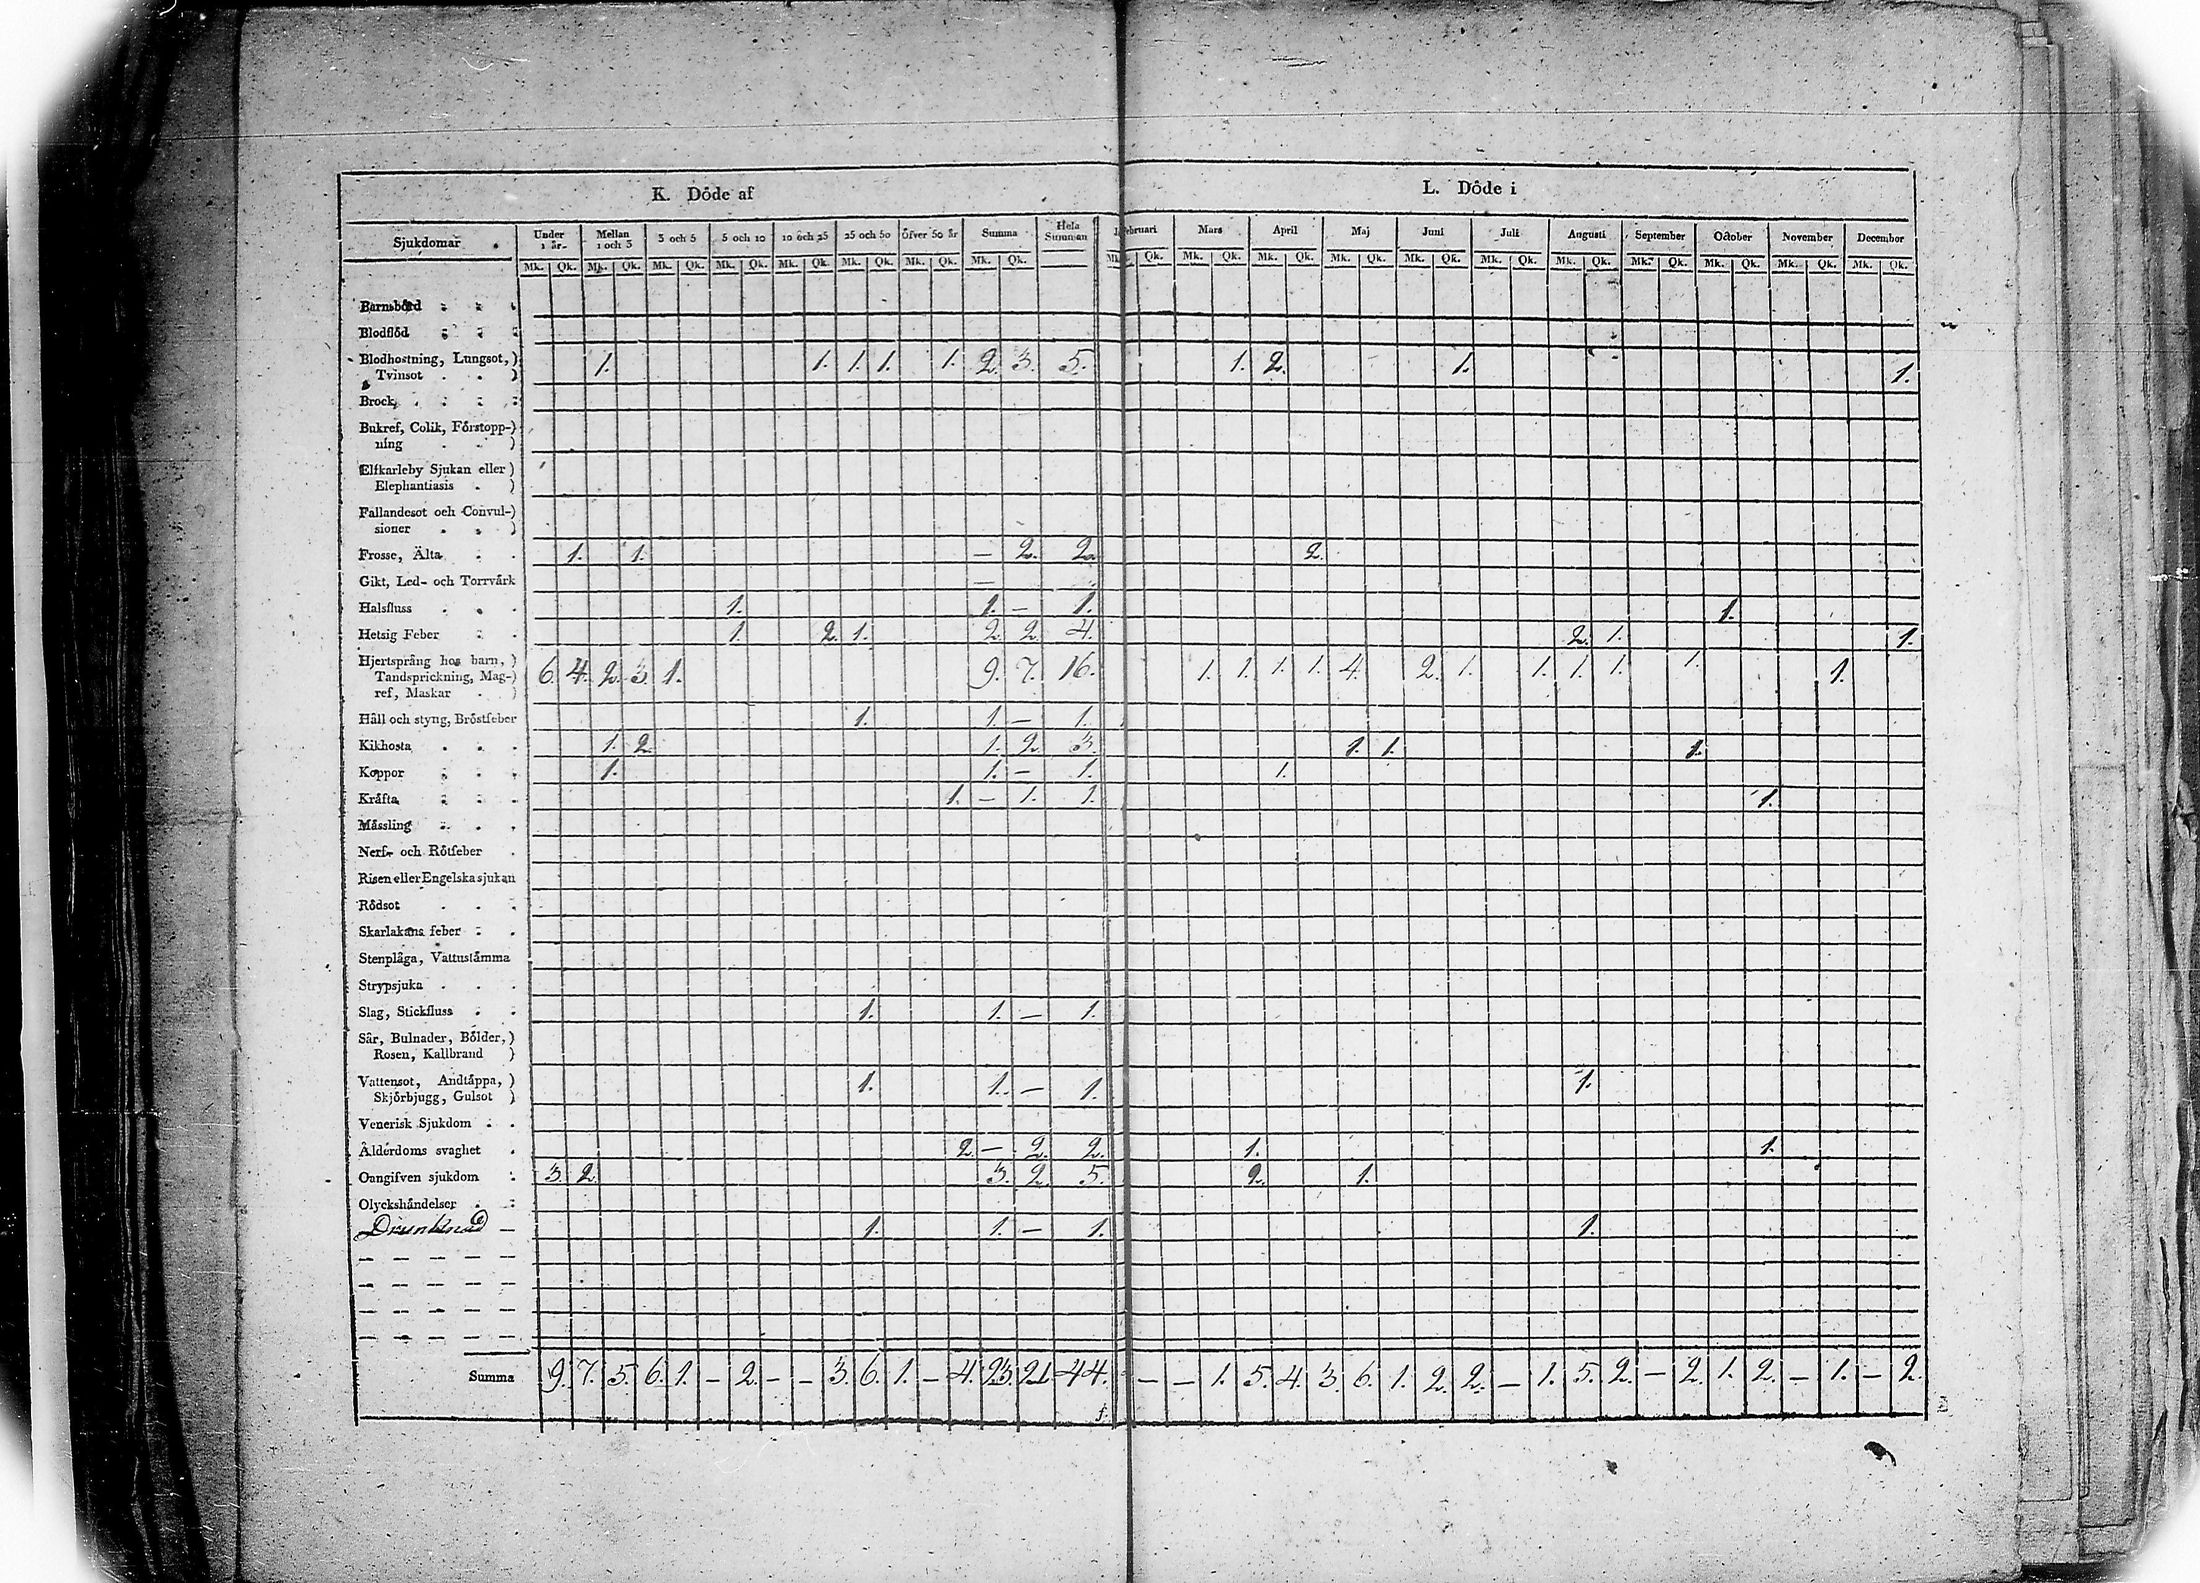 K. Döde af L. Döde i
Sjukdomar . Under 1 år Mellan 1 och 3 3 och 5 5 och 10 10 och 25 25 och 50 Öfver 50 år Summa Hela Summan Mars April Maj Juni Juli Augusti September October November December
Mk. Qk. Mk. Qk. Mk. Qk. Mk. Qk. Mk. Qk. Mk. Qk. Mk. Qk. Mk. Qk. Qk. Mk. Qk. Mk. Qk. Mk. Qk. Mk. Qk. Mk. Qk. Mk. Qk. Mk. Qk. Mk. Qk. Mk. Qk. Mk. Qk.
Barnsbörd . . .
Blodflöd . . .
Blodhostning, Lungsot,) 1. 1. 1. 1. 1. 2. 3. 5. 1. 2. 1. 1.
Tvinsot . . )
Brock . . . .
Bukref, Colik, Förstopp-)
ning . . )
Elfkarleby Sjukan eller)
Elephantiasis . )
Fallandesot och Convul-)
sioner . . )
Frosse, Älta . . 1. 1. — 2. 2. 2.
Gikt, Led- och Torrvärk —
Halsfluss . . . 1. 1. — 1. 1.
Hetsig Feber . . 1. 2. 1. 2. 2. 4. 2. 1. 1.
Hjertsprång hos barn, )
Tandsprickning, Mag-) 6. 4. 2. 3. 1. 9. 7. 16. 1. 1. 1. 1. 4. 2. 1. 1. 1. 1. 1. 1.
ref, Maskar . )
Håll och styng, Bröstfeber 1. 1. — 1.
Kikhosta . . . 1. 2. 1. 2. 3. 1. 1. 1.
Koppor . . . 1. 1. — 1. 1.
Kräfta . . . 1. — 1. 1. 1.
Måssling . . .
Nerf- och Rötfeber .
Risen eller Engelska sjukan
Rödsot . . .
Skarlakans feber . .
Stenplåga, Vattustämma
Strypsjuka . . .
Slag, Stickfluss . . 1. 1. — 1.
Sår, Bulnader, Bölder,)
Rosen, Kallbrand )
Vattensot, Andtäppa, ) 1. 1. — 1. 1.
Skjörbjugg, Gulsot )
Venerisk Sjukdom . .
Ålderdoms svaghet . 2. — 2. 2. 1. 1.
Onngifven sjukdom . 3. 2. 3. 2. 5. 2. 1.
Olyckshändelser . .
Drunknad — 1. 1. — 1. 1.
— — — — —
— — — — —
— — — — —
— — — — —
Summa 9. 7. 5. 6. 1. — 2. — — 3. 6. 1. — 4. 23. 21 44. — — 1. 5. 4. 3. 6. 1. 2. 2. — 1. 5. 2. — 2. 1. 2. — 1. — 2.